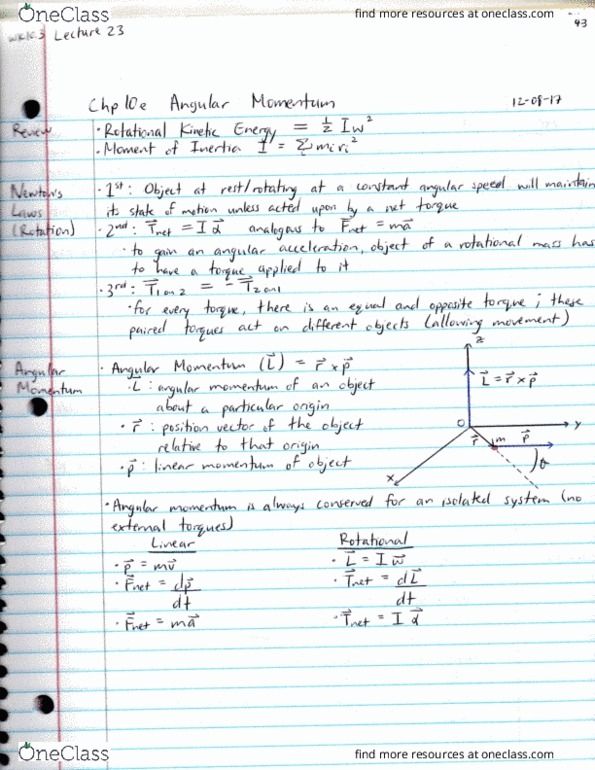 OneClass
find more resources at oneclass.com
43
Lecture 23
Chp 10e Angular Momentum 12-08-17
Review
· Rotational Kinetic Energy = ½ Iω²
· Moment of Inertia I = Σmᵢrᵢ²
Newton's Laws (Rotation)
· 1st: Object at rest/rotating at a constant angular speed will maintain
its state of motion unless acted upon by a net torque
· 2nd: T⃗net = I α⃗ analogous to F⃗net = ma⃗
· to gain an angular acceleration, object of a rotational mass has
to have a torque applied to it
· 3rd: T⃗1on2 = -T⃗2on1
· for every torque, there is an equal and opposite torque; these
paired torques act on different objects (allowing movement)
Angular Momentum
· Angular Momentum (L⃗) = r⃗ × p⃗
· L: angular momentum of an object
about a particular origin
· r⃗: position vector of the object
relative to that origin
· p⃗: linear momentum of object
z
L⃗ = r⃗ × p⃗
O
y
r⃗
m
p⃗
θ
x
· Angular momentum is always conserved for an isolated system (no
external torques)
Linear Rotational
· p⃗ = mv⃗ · L⃗ = I ω⃗
· F⃗net = dp⃗/dt · T⃗net = dL⃗/dt
· F⃗net = ma⃗ · T⃗net = I α⃗
OneClass
find more resources at oneclass.com